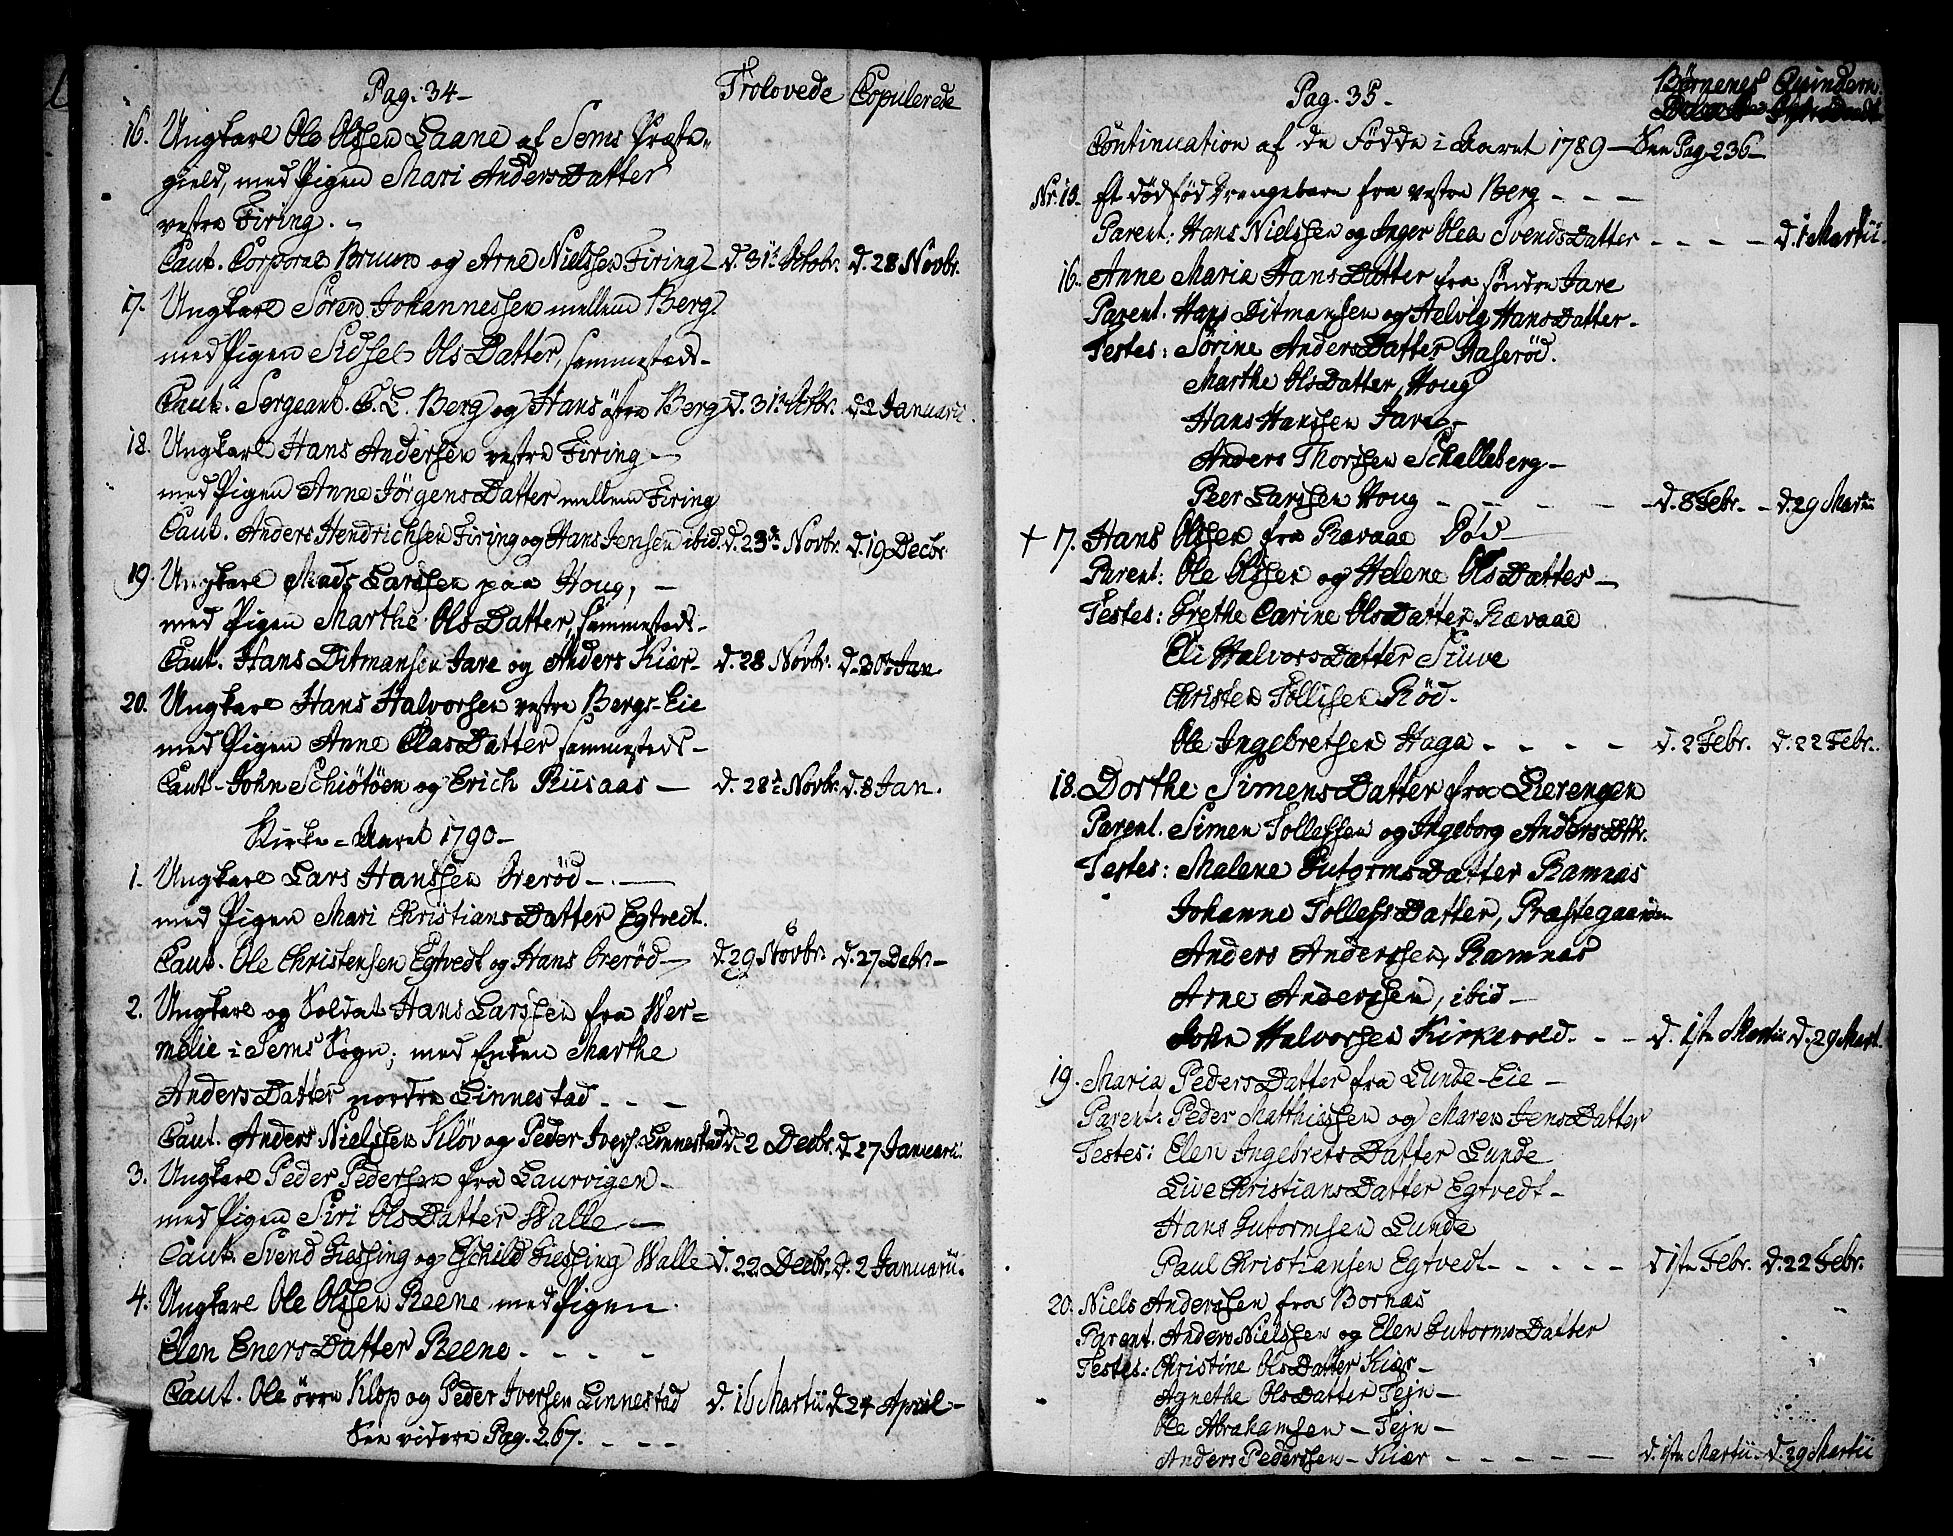 Pag. 34- Trolovede Copulerede
16. Ungkarl Ole Olssen Laane af Sems Præste-
gield, med Pigen Mari AndersDatter
vestre Firing. -
Caut. Corporal Bruun og Arne Nielssen Firing - d. 31te Octobr. d. 28 Novbr.
17. Ungkarl Sören Johannessen mellem Berg
med Pigen Sidsel OlsDatter, sammesteds-
Caut. Sergeant C. L. Berg og Hans östre Berg d. 31te Octbr. d. 2 Januarii.
18. Ungkarl Hans Andersen vestre Firing -
med Pigen Anne JörgensDatter mellem Firing
Caut. Anders Hendrichsen Firing og Hans Jensen ibid. d. 23de Novbr. d. 19 Decbr
19. Ungkarl Mads Larssen paa Houg, -
med Pigen Marthe OlsDatter, sammesteds-
Caut. Hans Ditmansen Jare og Anders Kiær- d. 28 Novbr. d. 30 Jan
20. Ungkarl Hans Halvorsen vestre Bergs-Eie
med Pigen Anne OlasDatter sammesteds-
Caut- John Schiötöen og Erich Riisaas - d. 28de Novbr. d. 8 Jan.
Kirke-Aaret 1790-
1. Ungkarl Lars Hanssen Ørerød - . -
med Pigen Mari ChristiansDatter Egtvedt.
Caut. Ole Christensen Egtvedt og Hans Ørerød - d. 29 Novbr. d. 27 Debr. -
2. Ungkarl og Soldat Hans Larssen fra Wer=
melie i Sems Sogn; med Enken Marthe
AndersDatter nordre Linnestad. - - -
Caut. Anders Nielssen Kiløv og Peder Ivers. Linnestad d. 2 Decbr. d. 27 Januarii.
3. Ungkarl Peder Pedersen fra Laurvigen -
med Pigen Siri OlsDatter Walle -
Caut. Svend Giessing og Eschild Giessing Walle d. 22 Decbr. d. 2 Januarii.
4. Ungkarl Ole Olssen Reene med Pigen
Elen EnersDatter Reene - - - -
Caut. Ole övre Klop og Peder Iversen Linnestad d. 16 Martii d. 24 April -
See videre Pag. 267. - - -
Pag. 35- Börnenes Qvindern.
Continuation af de Födde i Aaret 1789 - See Pag. 236 -
Nr. 15. Et dödföd Drengebarn fra vestre Berg - - -
Parent: Hans Nielssen og Inger Olea SvendsDatter - - - - d. 1 Martii.
16. Anne Maria HansDatter fra söndre Jare
Parent: Hans Ditmansen og Helvig HansDatter.
Testes: Sörine AndersDatter Aaseröd.
Marthe OlsDatter, Houg
Hans Hanssen Jare -
Anders Thorssen Schalleberg -
Peer Larssen Houg - - - - d. 8 Febr. - d. 29 Martii
+ 17. Hans Olssen fra Rævaae Död
Parent: Ole Olssen og Helene OlsDatter -
Testes: Grethe Carine OlsDatter Rævaae
Eli HalvorsDatter Siüve
Christen Tollisen Röd.
Ole Ingebretsen Haga - - - - d. 2 Febr. d. 22 Febr.
18. Dorthe SimensDatter fra Lierengen
Parent. Simen Tollefsen og Ingeborg AndersDttr.
Testes: Malene GutormsDatter Ramnas
Johanne TollefsDatter, Præstegaarden
Anders Anderssen, Ramnas
Arne Anderssen, ibid -
John Halvorsen Kirkevold. - - d. 1ste Martii d. 29 Mart.
19. Maria PedersDatter fra Lunde-Eie -
Parent: Peder Matthissen og Maren JensDatter
Testes: Elen IngebretsDatter Lunde
Live ChristiansDatter Egtvedt -
Hans Gutormsen Lunde
Paul Christiansen Egtvedt - - - - d. 1ste Febr. d. 22 Febr.
20. Niels Anderssen fra Bornæs
Parent. Anders Nielssen og Elen GutormsDatter
Testes: Christine OlsDatter Kiær -
Agnethe OlsDatter Tejn -
Ole Abrahamsen - Tejn -
Anders Pederssen - Kiær - - - - - d. 1ste Martii - d. 29 Martii